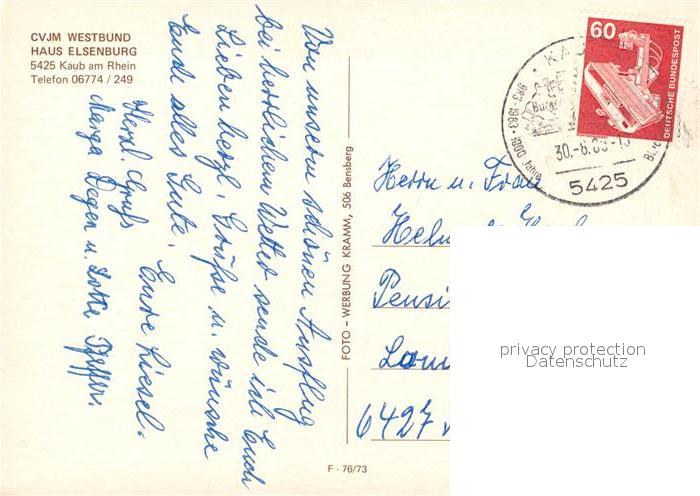 CVJM WESTBUND
HAUS ELSENBURG
5425 Kaub am Rhein
Telefon 06774 / 249
Von unserem schönen Ausflug
bei herrlichem Wetter sende ich Euch
Lieben herzl. Grüße u. wünsche
Euch alles Gute.
Eure Liesel.
Herzl. Gruß
Marga Degen u. Lotte Pfeffer.
FOTO - WERBUNG KRAMM, 506 Bensberg
F - 76/73
60
DEUTSCHE BUNDESPOST
983-1983 · 1000 Jahre
30.-8.83-15
5425
Herrn u. Frau
6427
privacy protection
Datenschutz